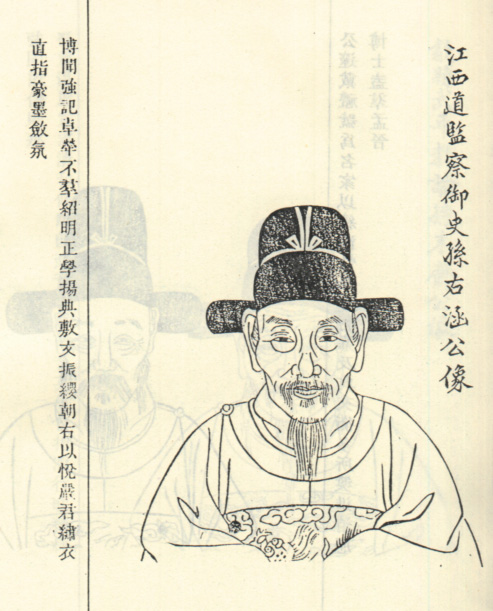 江西道監察御史孫右涵公像
博聞強記卓犖不羣紹明正學揚典敷文振纓朝右以悅嚴君繡衣
直指豪墨斂氛